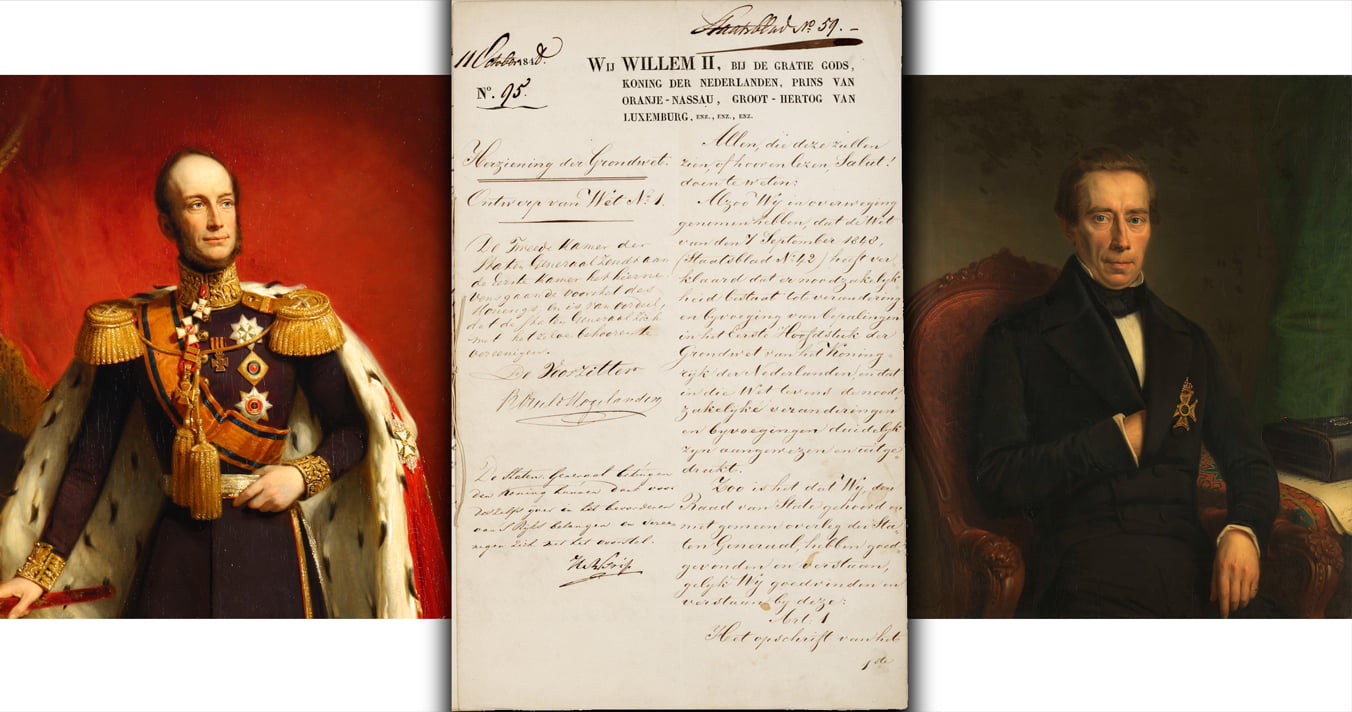 Staatsblad No 59. –
11 October 1848.
No. 95.
WIJ WILLEM II, BIJ DE GRATIE GODS,
KONING DER NEDERLANDEN, PRINS VAN
ORANJE-NASSAU, GROOT-HERTOG VAN
LUXEMBURG, ENZ., ENZ., ENZ.
Herziening der Grondwet.
Ontwerp van Wet No. 1.
De Tweede Kamer der
Staten Generaal zendt aan
de Eerste Kamer het hierne-
vens gaande voorstel des
Konings, en is van oordeel,
dat de Staten Generaal zich
met hetzelve behooren te
vereenigen.
De Voorzitter
De Staten Generaal betuigen
den Koning hunnen dank voor
Deszelfs yver in het bevorderen
van 's Ryks belangen en veree-
nigen zich met het voorstel.
Allen, die deze zullen
zien, of hooren lezen, Salut!
doen te weten:
Alzoo Wy in overweging
genomen hebben, dat de Wet
van den 7 September 1848,
(Staatsblad No. 42) heeft ver-
klaard dat er noodzakelyk-
heid bestaat tot verandering
en byvoeging van bepalingen
in het Eerste Hoofdstuk der
Grondwet van het Koning-
ryk der Nederlanden, en dat
in die Wet tevens de nood-
zakelyke veranderingen
en byvoegingen duidelyk
zyn aangewezen en uitge-
drukt.
Zoo is het dat Wy, den
Raad van State gehoord en
met gemeen overleg der Sta-
ten Generaal, hebben goed-
gevonden en verstaan,
gelyk Wy goedvinden en
verstaan by deze:
Art. 1
Het opschrift van het
1ste